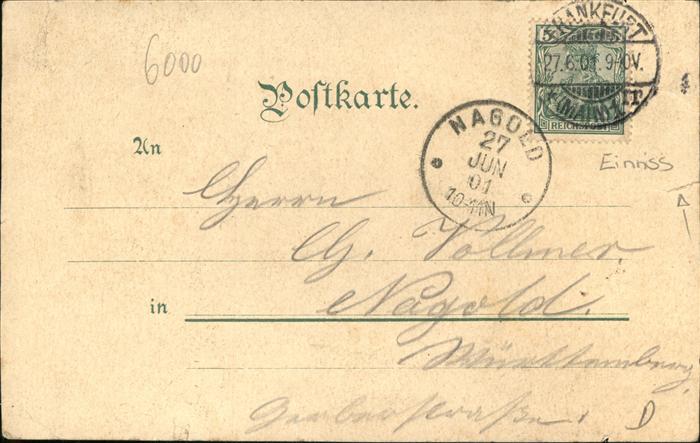 6000
Postkarte.
5
FRANKFURT
27.6.01. 9-10V.
(MAIN) 1
REICHSPOST
NAGOLD
27
JUN
01
10-11N
Einriss
An
Herrn
Ch. Vollmer.
in Nagold.
Württemberg,
Gerberstraße.
D